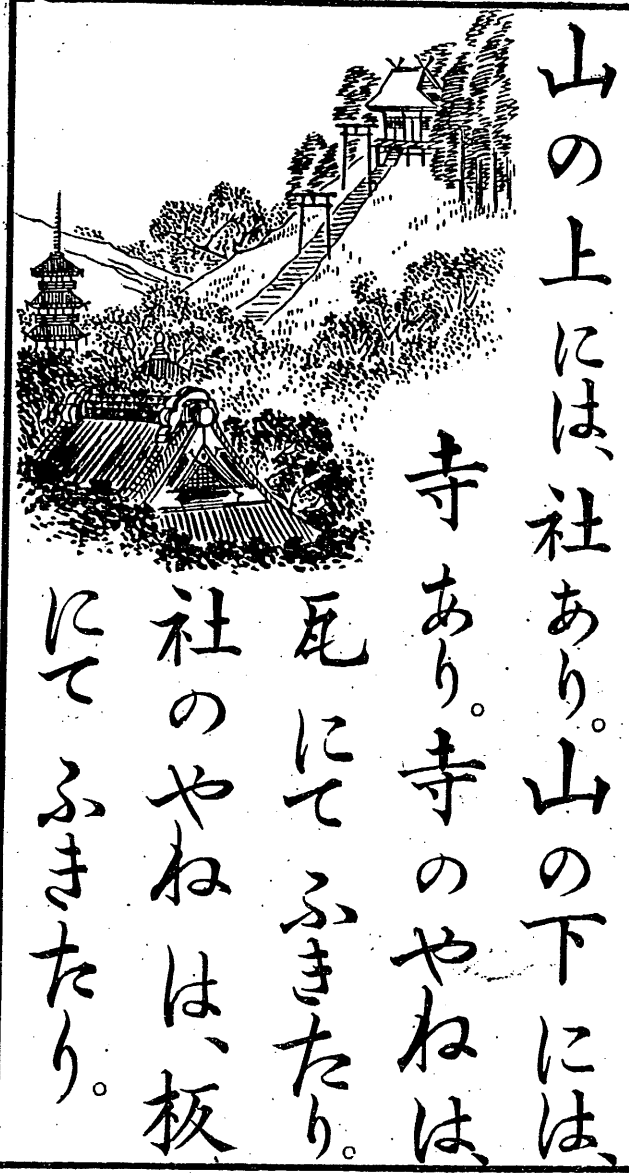 山の上には、社あり。山の下には、
寺あり。寺のやねは、
瓦にてふきたり。
社のやねは、板
にてふきたり。